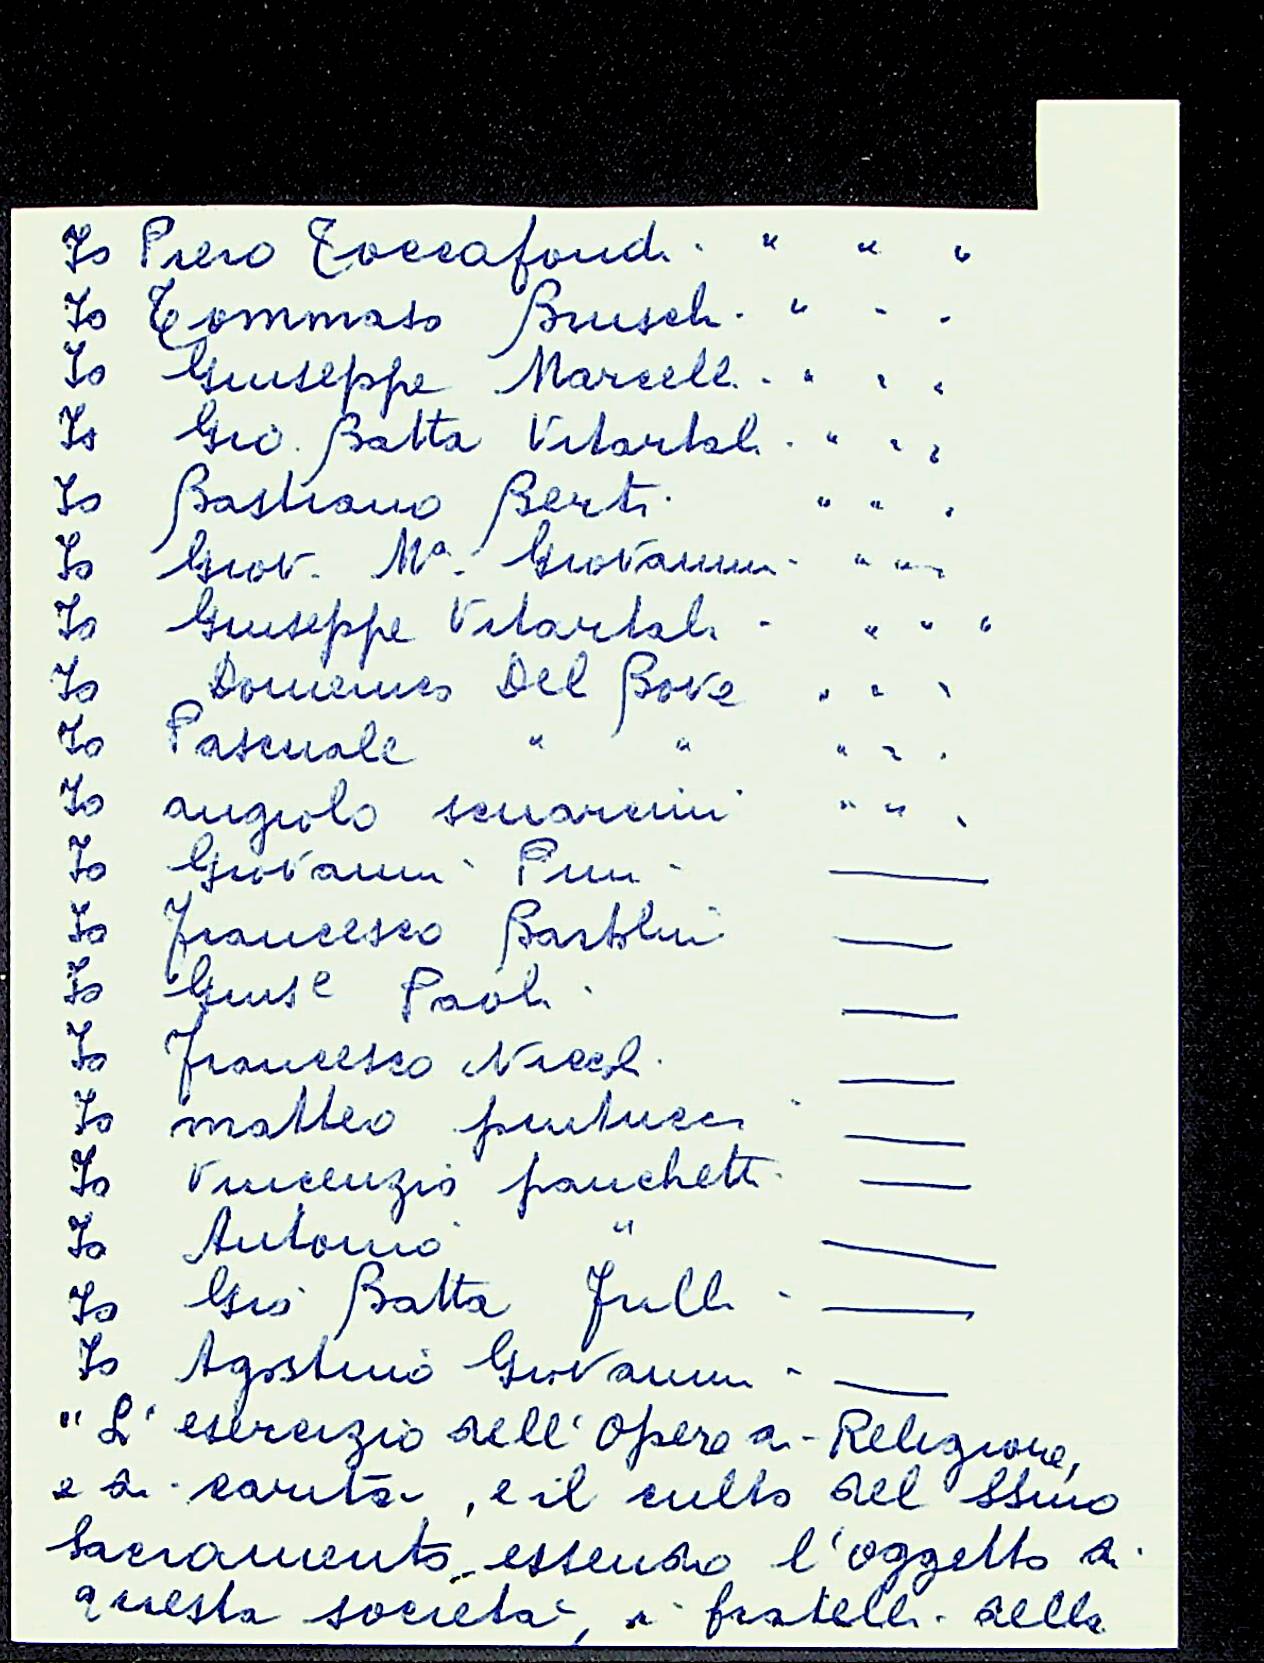 Io Piero Toccafondi " " "
Io Tommaso Bruschi " " "
Io Giuseppe Marcelli " " "
Io Gio. Batta Vitartali " " "
Io Bastiano Berti " " "
Io Giov. Mª. Giovannini " " "
Io Giuseppe Vitartali " " "
Io Domenico Del Bove " " "
Io Pascuale " " " " "
Io angiolo scuarcini " " "
Io Giovanni Pini —
Io Francesco Bartolini —
Io Gius.e Paoli —
Io Francesco Niccoli —
Io matteo pintucci —
Io Vincenzio panchetti —
Io Antonio " —
Io Gio Batta Fulli —
Io Agostino Giovannini —
"L'esercizio dell'Opere di Religione,
e di carità, e il culto del SSmo
Sacramento essendo l'oggetto di
questa società, i fratelli della